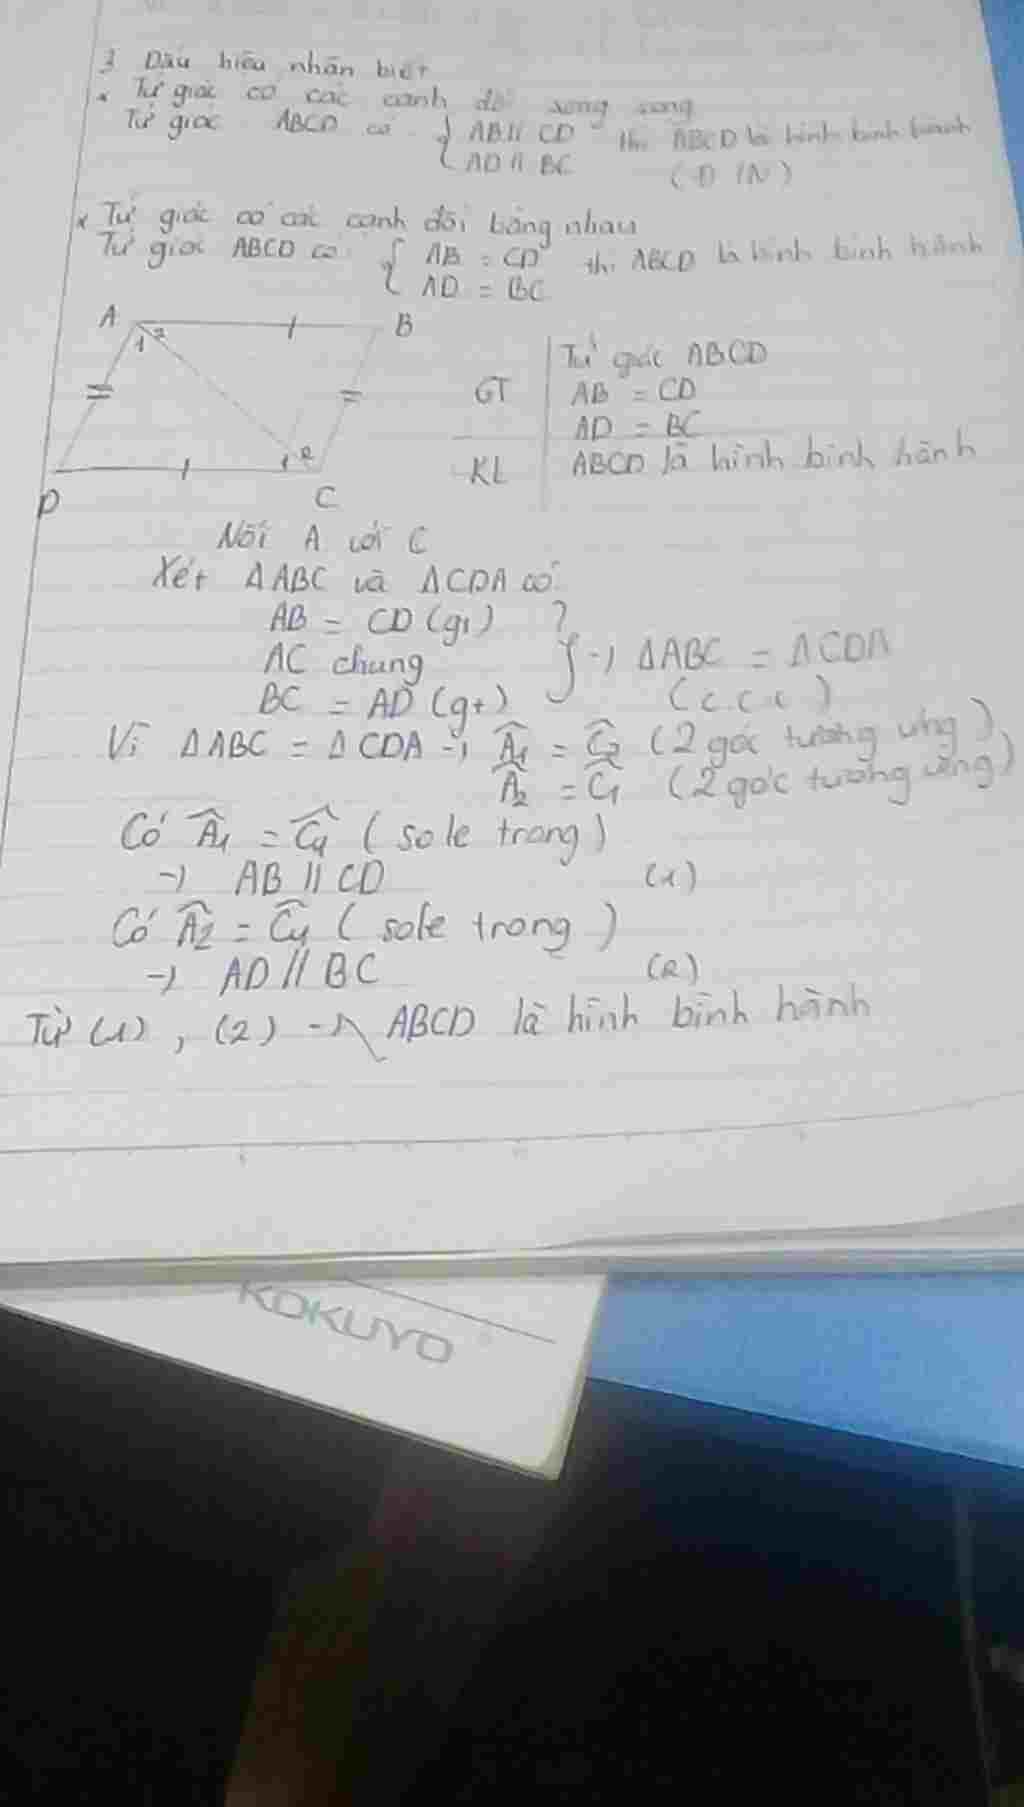 3 Dấu hiệu nhân biết
* Tứ giác có các cạnh đối song song
Tứ giác ABCD có { AB // CD thì ABCD là hình bình hành
AD // BC (Đ/N)
* Tứ giác có các cạnh đối bằng nhau
Tứ giác ABCD có { AB = CD thì ABCD là hình bình hành
AD = BC
A 1 2 B
Tứ giác ABCD
GT AB = CD
AD = BC
KL ABCD là hình bình hành
1 2
D C
Nối A với C
Xét ΔABC và ΔCDA có
AB = CD (gt)
AC chung } → ΔABC = ΔCDA
BC = AD (gt) (c.c.c)
Vì ΔABC = ΔCDA → Â1 = Ĉ2 (2 góc tương ứng)
Â2 = Ĉ1 (2 góc tương ứng)
Có Â1 = Ĉ4 (sole trong)
→ AB // CD (1)
Có Â2 = Ĉ4 (sole trong)
→ AD // BC (2)
Từ (1), (2) → ABCD là hình bình hành
KOKUYO